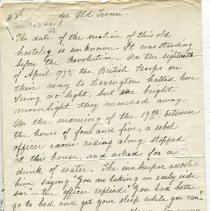 Old Tavern
The date of the erection of this old
hostelry is unknown. It was standing
before the Revolution. On the eighteenth
of April 1775 the British troops on
their way to Lexington halted here
seeing a light, but the bright
moonlight they marched away.
On the morning of the 19th between
the hours of four and five, a rebel
officer came riding along stopped
at this house, and asked for a
drink of water. The inn keeper accosted
him, saying "You are taking an early ride
sir" the officer replied "You had better
go to bed and get your sleep while you can"